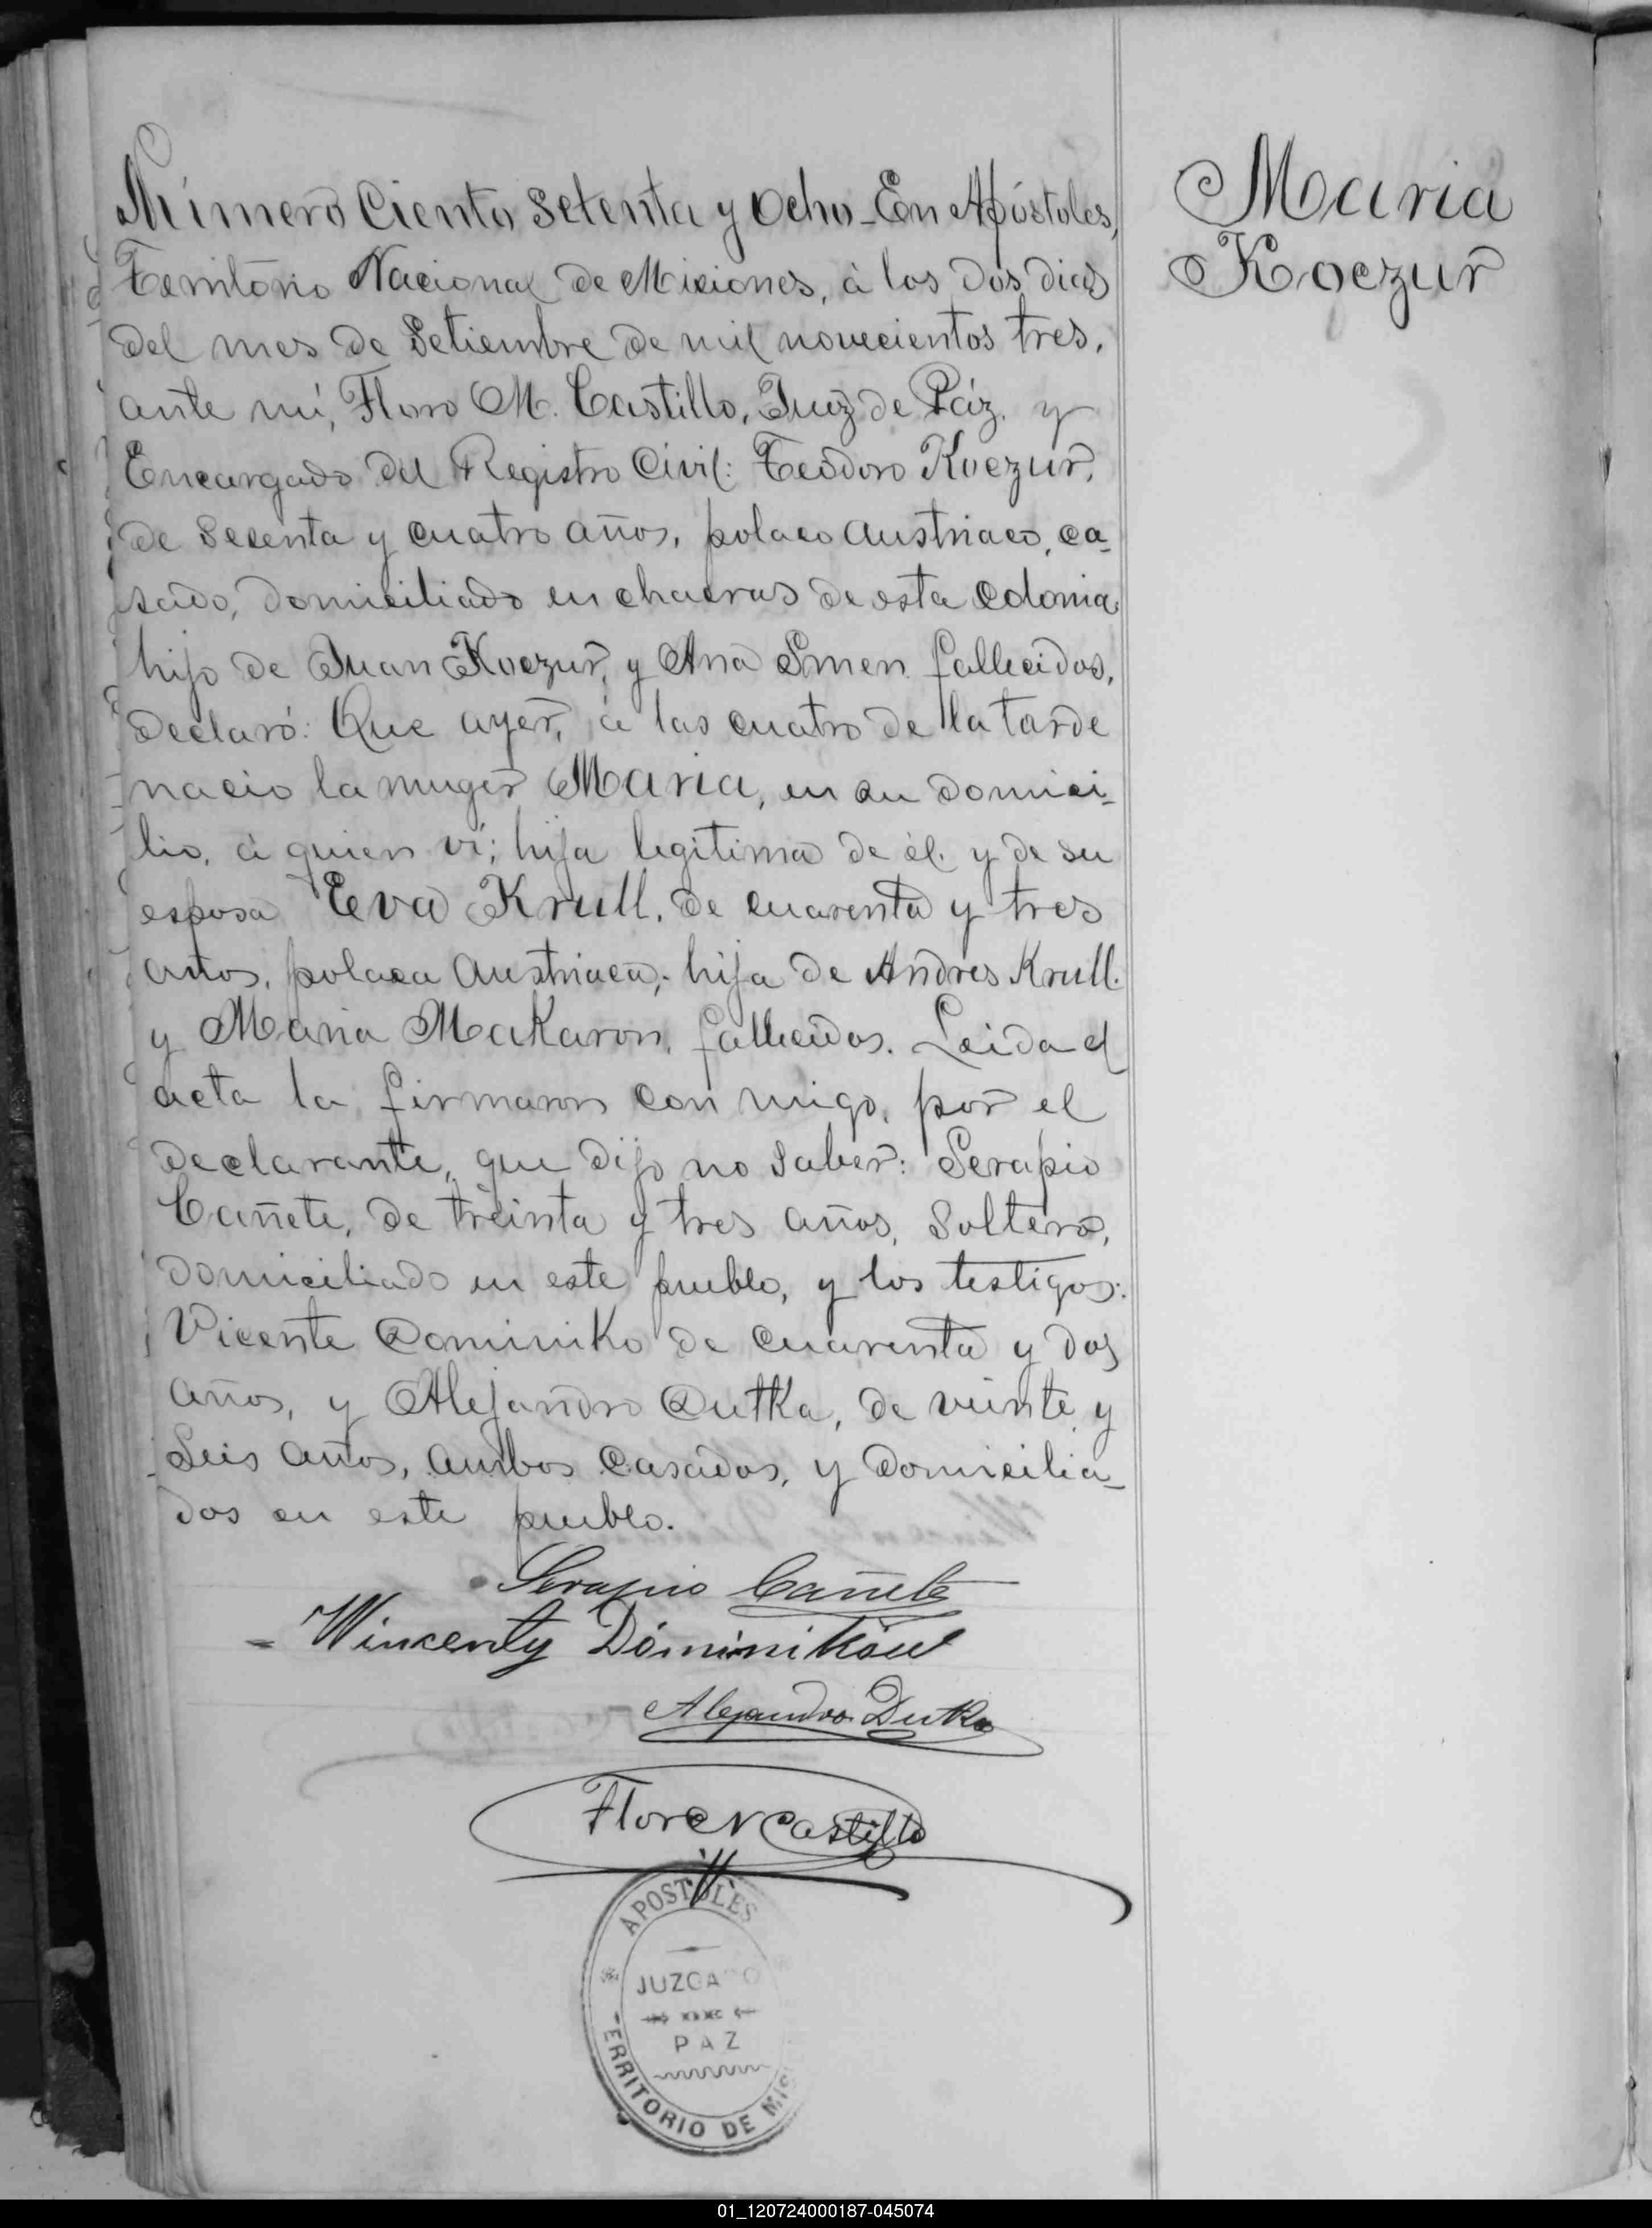 Número Ciento Setenta y Ocho_En Apóstoles,
Territorio Nacional de Miciones, á los dos dias
del mes de Setiembre de mil novecientos tres.
ante mí, Floro M. Castillo, Juez de Páz y
Encargado del Registro Civil: Teodoro Koczur,
de Secenta y cuatro años, polaco austriaco, ca-
sado, domiciliado en chacras de esta Colonia,
hijo de Juan Koczur, y Ana Smen fallecidos,
declaró: Que ayer, á las cuatro de la tarde
nacio la muger Maria, en su domici-
lio, á quien ví; hija legitima de él y de su
esposa Eva Krull, de cuarenta y tres
años, polaca austriaca; hija de Andres Krull
y Maria Makaron, fallecidos. Leida el
acta la firmaron con migo, por el
declarante, que dijo no saber: Serapio
Cañete, de treinta y tres años, Soltero,
domiciliado en este pueblo, y los testigos:
Vicente Dominiko de cuarenta y dos
años, y Alejandro Dutka, de veinte y
Seis años, ambos casados, y domicilia-
dos en este pueblo.
Serapio Cañete
Wincenty Dominików
Alejandro Dutka
Floro M Castillo
APOSTOLES
JUZGADO
PAZ
TERRITORIO DE MIS
Maria
Koczur
01_120724000187-045074